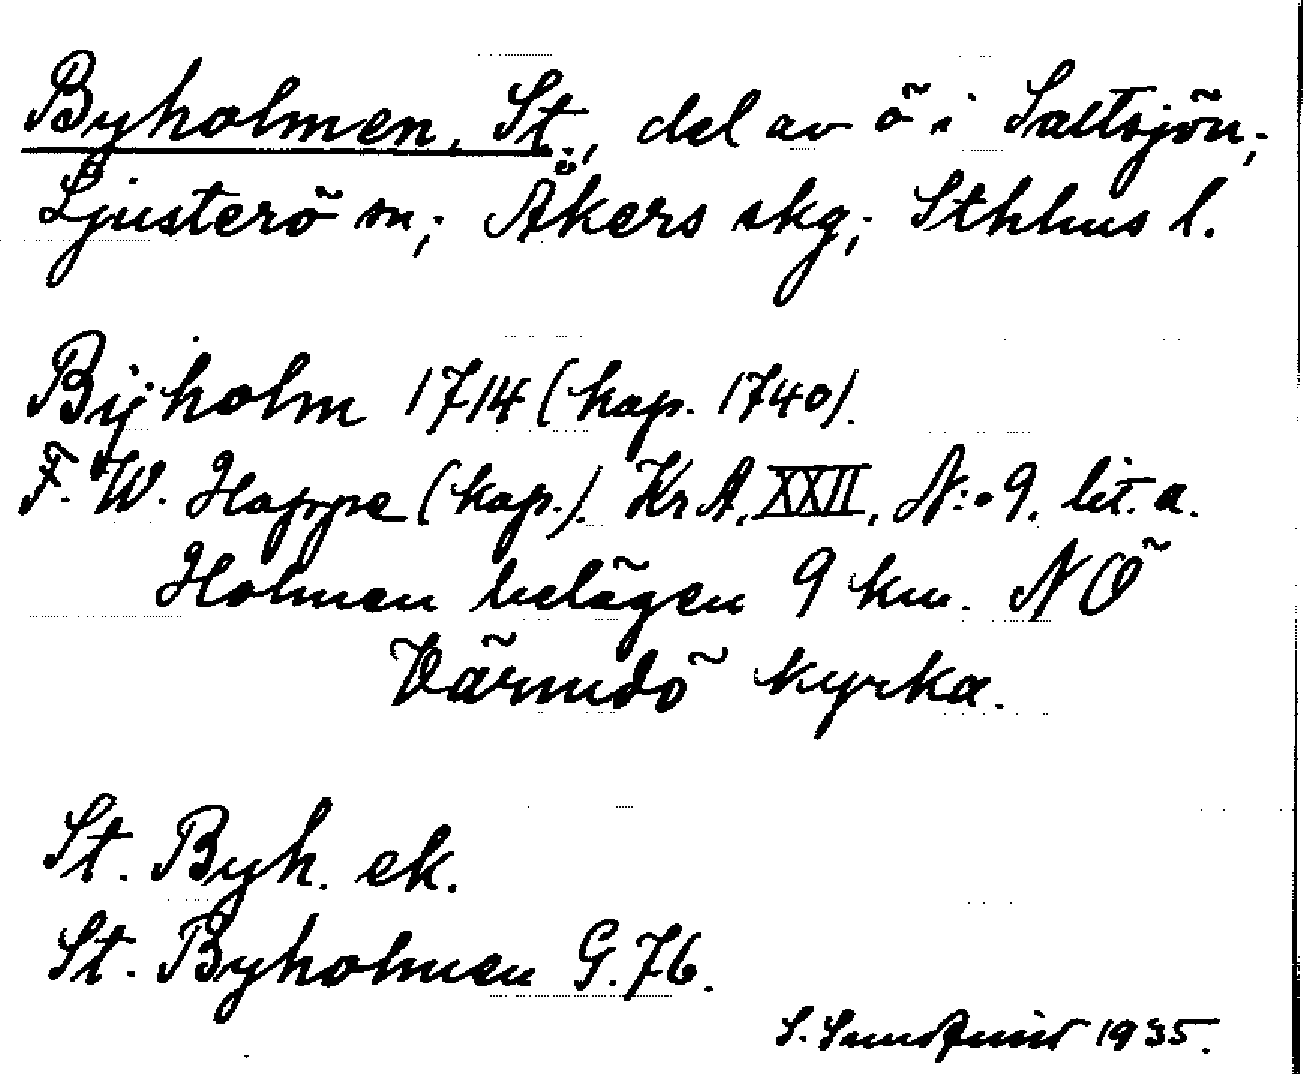 Byholmen, St., del av ö i Saltsjön;
Ljusterö sn; Åkers skg; Sthlms l.
Bÿholm 1714 (kap. 1740).
F. W. Hoppe (kap.). Kr A. XXII, N:o 9. lit. a.
Holmen belägen 9 km. NÖ
Värmdö kyrka.
St. Byh. ek.
St. Byholmen G. 76.
S. Sundquist 1935.